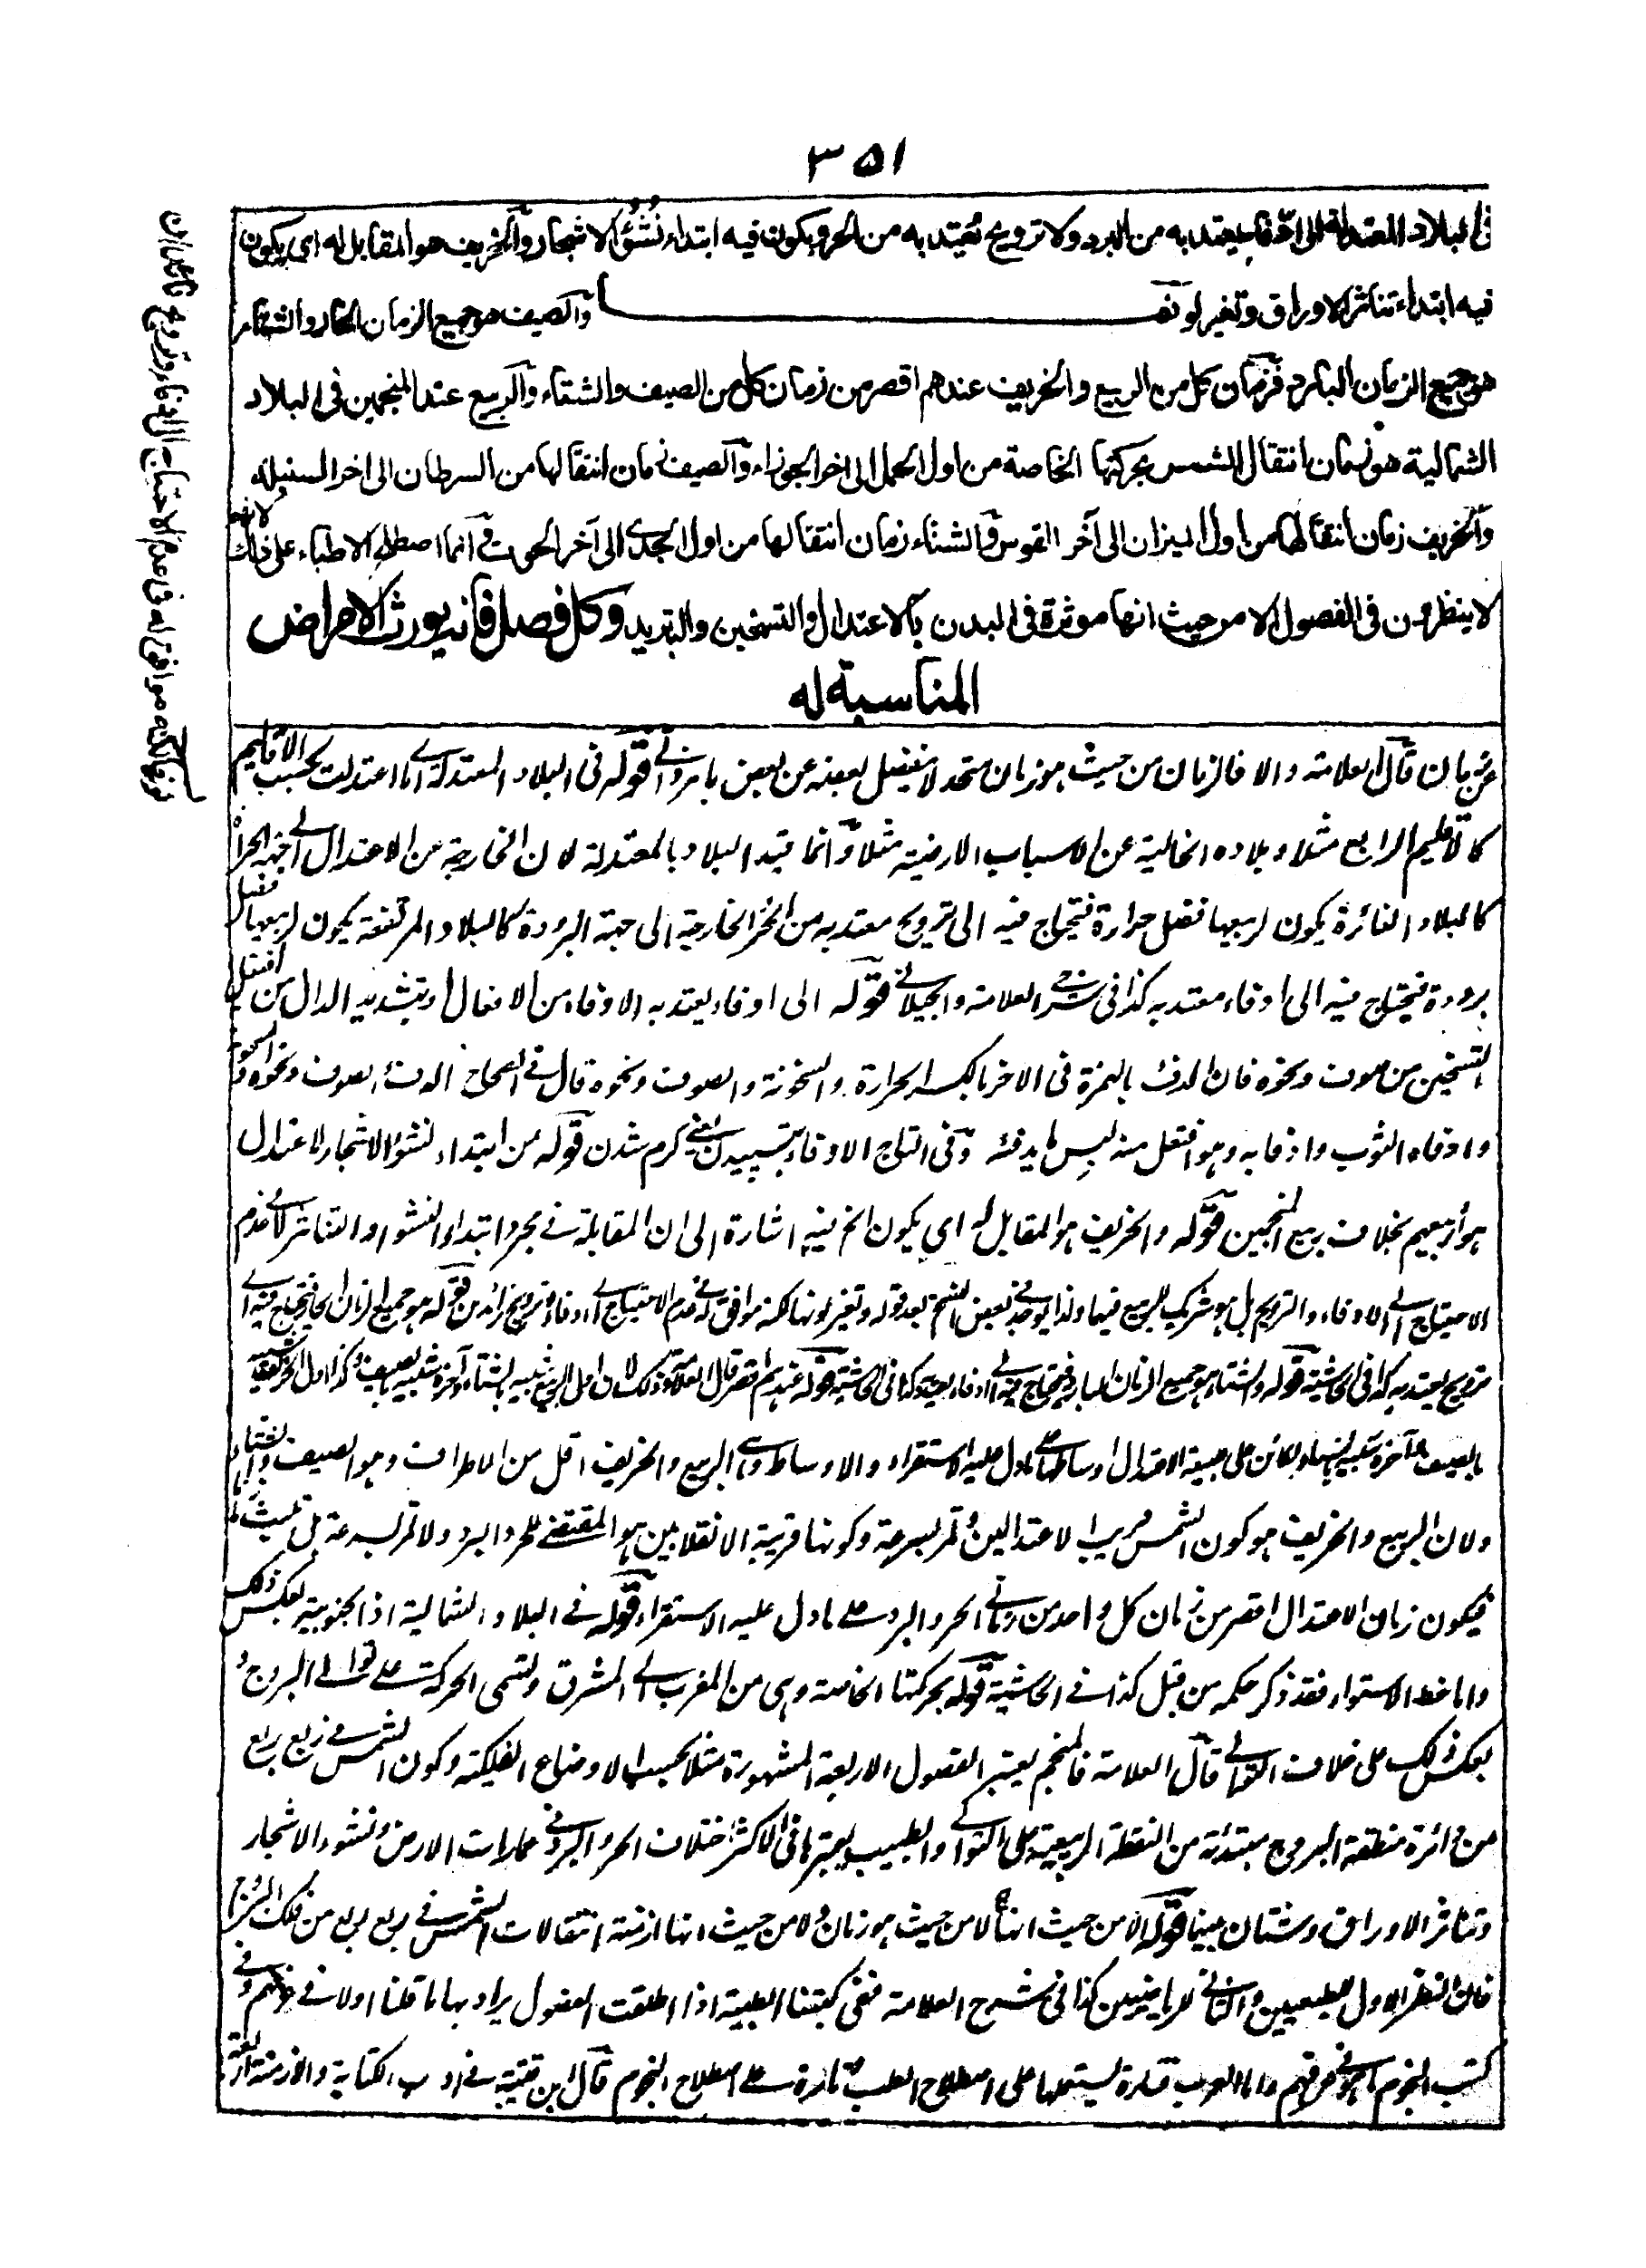 ٣٥١
فى البلاد المعتدلة الى ادفاء يعتد به من البرد ولا ترويح يعتد به من الحر ويكون فيه ابتداء نشؤ الاشجار والخريف هو المقابل له اى يكون
فيه ابتداء تناثر الاوراق وتغير لونها والصيف هو جميع الزمان الحار والشتاء
هو جميع الزمان البارد فزمان كل من الربيع والخريف عندهم اقصر من زمان كل من الصيف والشتاء والربيع عند المنجمين فى البلاد
الشمالية هو زمان انتقال الشمس بحركتها الخاصة من اول الحمل الى اخر الجوزاء والصيف زمان انتقالها من السرطان الى اخر السنبلة
والخريف زمان انتقالها من اول الميزان الى آخر القوس والشتاء زمان انتقالها من اول الجدى الى آخر الحوت وانما اصطلح الاطباء على ذلك لانهم
لا ينظرون فى الفصول الا من حيث انها موثرة فى البدن بالاعتدال والتسخين والتبريد وكل فصل فانه يورث الامراض
المناسبة له
قال العلامة والا فالزمان من حيث هو زمان متحد لا ينفصل بعضه عن بعض قوله فى البلاد المعتدلة اى ما اعتدلت بحسب الاقليم
كالاقليم الرابع مثلا وبلاده الخالية عن الاسباب الارضية مثلا وانما قيد البلاد بالمعتدلة لان الخارجة عن الاعتدال الى جهة الحرارة
كالبلاد الغائرة يكون لربيعها فضل حرارة فيحتاج فيه الى ترويح معتد به من الحر والخارجة الى جهة البرودة كالبلاد المرتفعة يكون لربيعها فضل
برودة فيحتاج فيه الى ادفاء معتد به كذا فى شرح العلامة والجيلانى قوله الى ادفاء يعتد به الادفاء من الافعال او بتشديد الدال من افتعل
التسخين من صوف ونحوه فان الدفء بالهمزة فى الاخر بالكسر الحرارة والسخونة والصوف ونحوه قال فى الصحاح الدفء الصوف ونحوه
وادفاه الثوب وادفا به وهو افتعل منه لبس ما يدفئه وفى التاج الادفاء گرم شدن قوله من ابتداء نشو الاشجار لاعتدال
هوا ربيعهم بخلاف ربيع المنجمين قوله والخريف هو المقابل له اى يكون الخ فيه اشارة الى ان المقابلة فى مجرد ابتداء النشو او التناثر لا فى عدم
الاحتياج الى الادفاء والترويح بل هو شريك للربيع فيها ولذا يوجد فى بعض النسخ بعد قوله وتغير لونها لكنه موافق له فى عدم الاحتياج الى ادفاء وترويح زائدين قوله هو جميع الزمان الحار فيحتاج فيه الى
ترويح يعتد به كذا فى الحاشية قوله والشتاء هو جميع الزمان البارد فيحتاج فيه الى ادفاء يعتد به كذا فى الحاشية قوله عندهم اقصر قال العلامة وذلك لان اول الربيع شبيه بالشتاء وآخره شبيه بالصيف وكذا اول الخريف شبيه
بالصيف وآخره شبيه بالشتاء على ما دل عليه الاستقراء والاوساط وهى الربيع والخريف اقل من الاطراف وهو الصيف والشتاء
ولان الربيع والخريف هو كون الشمس قريب الاعتدالين وتمر بسرعة وكونها قريبة الانقلابين هو المقتضى للحر والبرد ولا تمر بسرعة بل تلبث
فيكون زمان الاعتدال اقصر من زمان كل واحد من زمانى الحر والبرد على ما دل عليه الاستقراء قوله فى البلاد الشمالية اذ الجنوبية بعكس ذلك
واما خط الاستواء فقد ذكر حكمه من قبل كذا فى الحاشية قوله بحركتها الخاصة وهى من المغرب الى المشرق وتسمى الحركة على توالى البروج و
بعكس ذلك على خلاف التوالى قال العلامة فالمنجم يعتبر الفصول الاربعة المشهورة مثلا بحسب الاوضاع الفلكية وكون الشمس فى ربع ربع
من دائرة منطقة البروج مبتدئة من النقطة الربيعية على التوالى والطبيب يعتبرها فى الاكثر اختلاف الحر والبرد فى عمارات الارض ونشوء الاشجار
وتناثر الاوراق وشتان بينهما قوله الا من حيث انها لا من حيث هو زمان ولا من حيث انها ازمنة انتقالات الشمس فى ربع ربع من فلك البروج
فان النظر الاول للطبيعيين والثانى للرياضيين كذا فى شرح العلامة ففى كتبنا الطبية اذا اطلقت الفصول يراد بها ما قلنا اولا فى عرفهم وفى
كتب النجوم ما هو فى عرفهم واما العرب فتارة يستعملها على اصطلاح الطب وتارة على اصطلاح النجوم قال ابن قتيبة فى ادب الكتابة والازمنة اربعة
لكنه موافق له فى عدم الاحتياج الى ادفاء وترويح زائدان